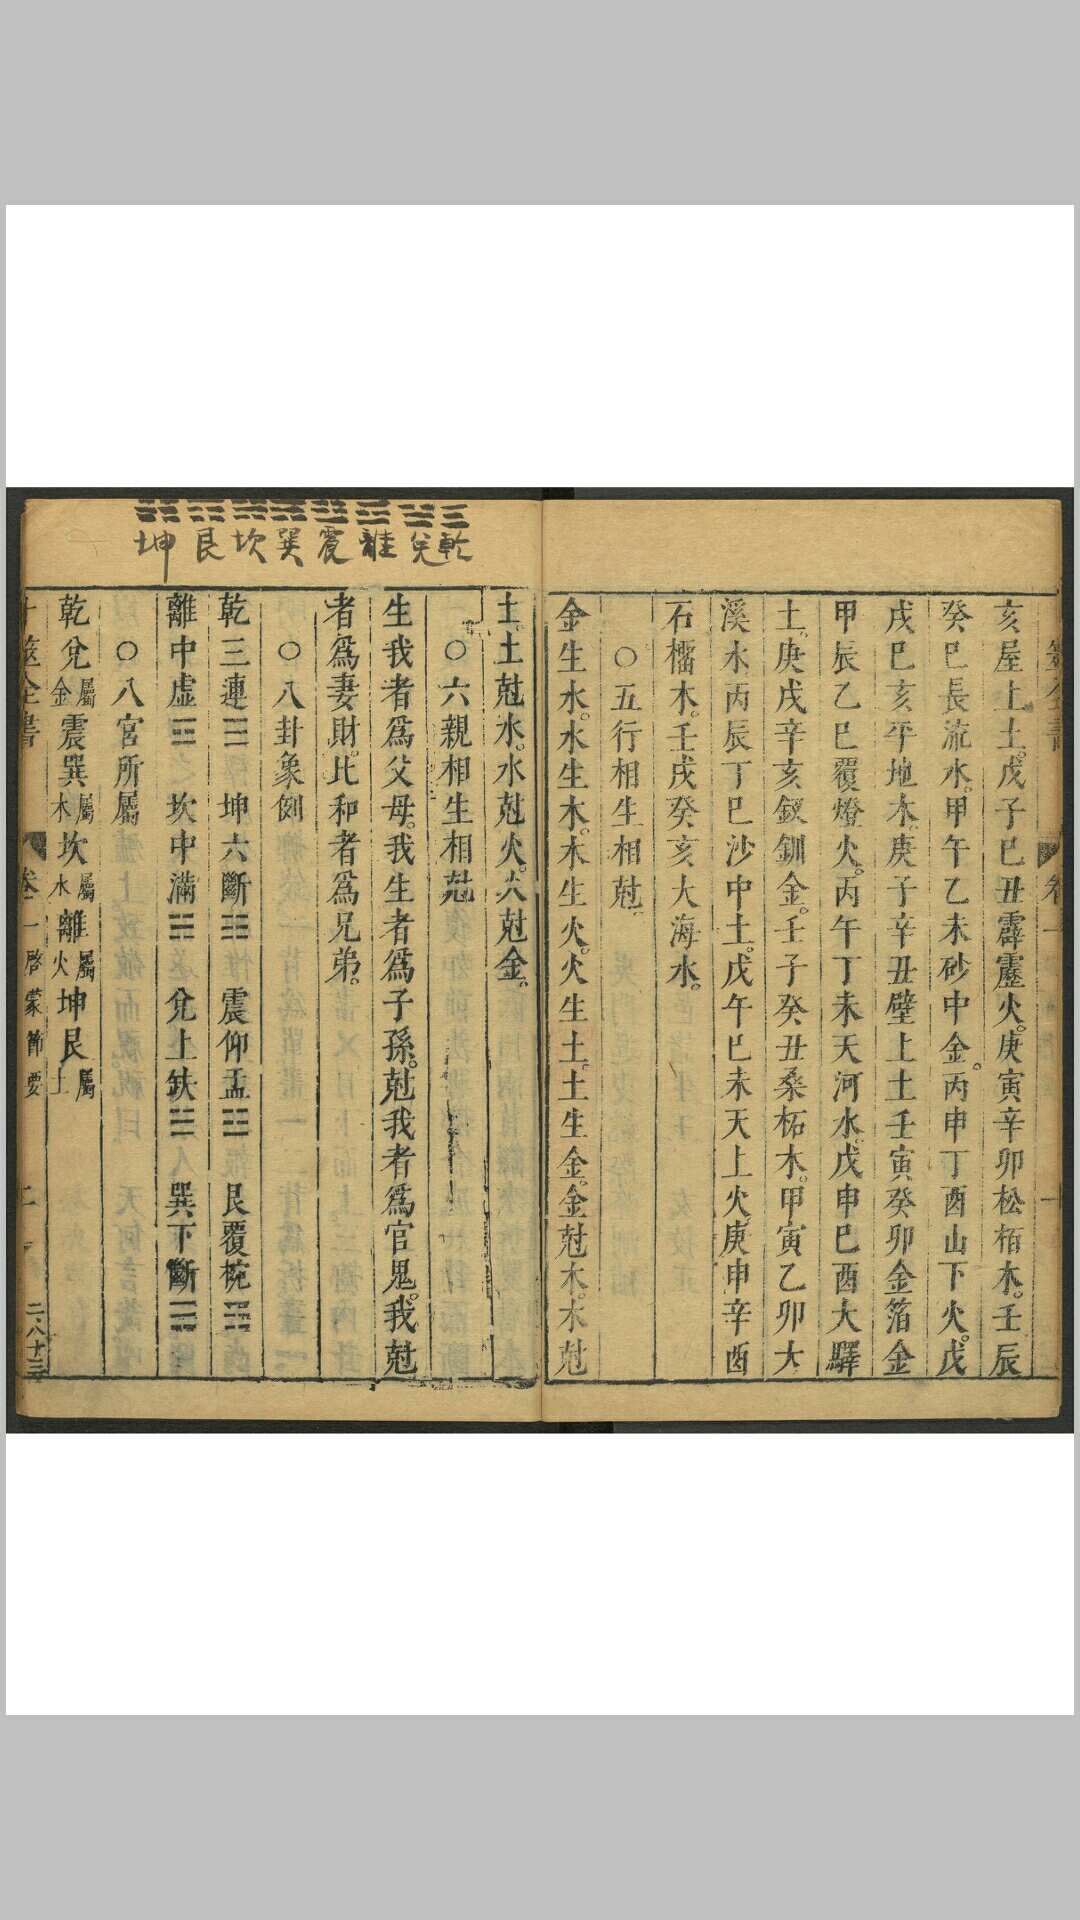 亥屋上土。戊子巳丑霹靂火。庚寅辛卯松栢木。壬辰
癸巳長流水。甲午乙未砂中金。丙申丁酉山下火。戊
戌巳亥平地木。庚子辛丑壁上土壬寅癸卯金箔金
甲辰乙巳覆燈火。丙午丁未天河水。戊申巳酉大驛
土。庚戌辛亥釵釧金。壬子癸丑桑柘木。甲寅乙卯大
溪水丙辰丁巳沙中土。戊午巳未天上火。庚申辛酉
石橊木。壬戌癸亥大海水。
○五行相生相尅
金生水。水生木。木生火。火生土。土生金。金尅木。木尅
土。土尅水。水尅火。火尅金。
○六親相生相尅
生我者爲父母。我生者爲子孫。尅我者爲官鬼。我尅
者爲妻財。比和者爲兄弟。
○八卦象例
乾三連☰坤六斷☷震仰盂☳艮覆椀☶
離中虛☲坎中滿☵兌上缺☱巽下斷☴
○八宮所屬
乾兌屬金震巽屬木坎屬水離屬火坤艮屬土
卜筮全書 卷一 啓蒙節要 二 二、八十三
乾 兌 離 震 巽 坎 艮 坤